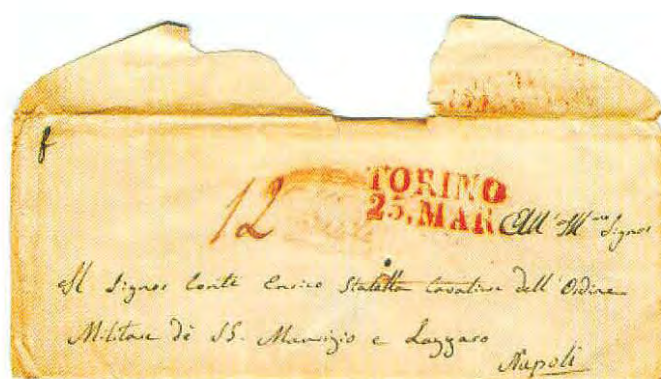 f
12
TORINO
25. MAR
All' Ill.mo Signor
Il Signor Conte Enrico Statella Cavaliere dell' Ordine
Militare dè SS. Maurizio e Lazzaro
Napoli